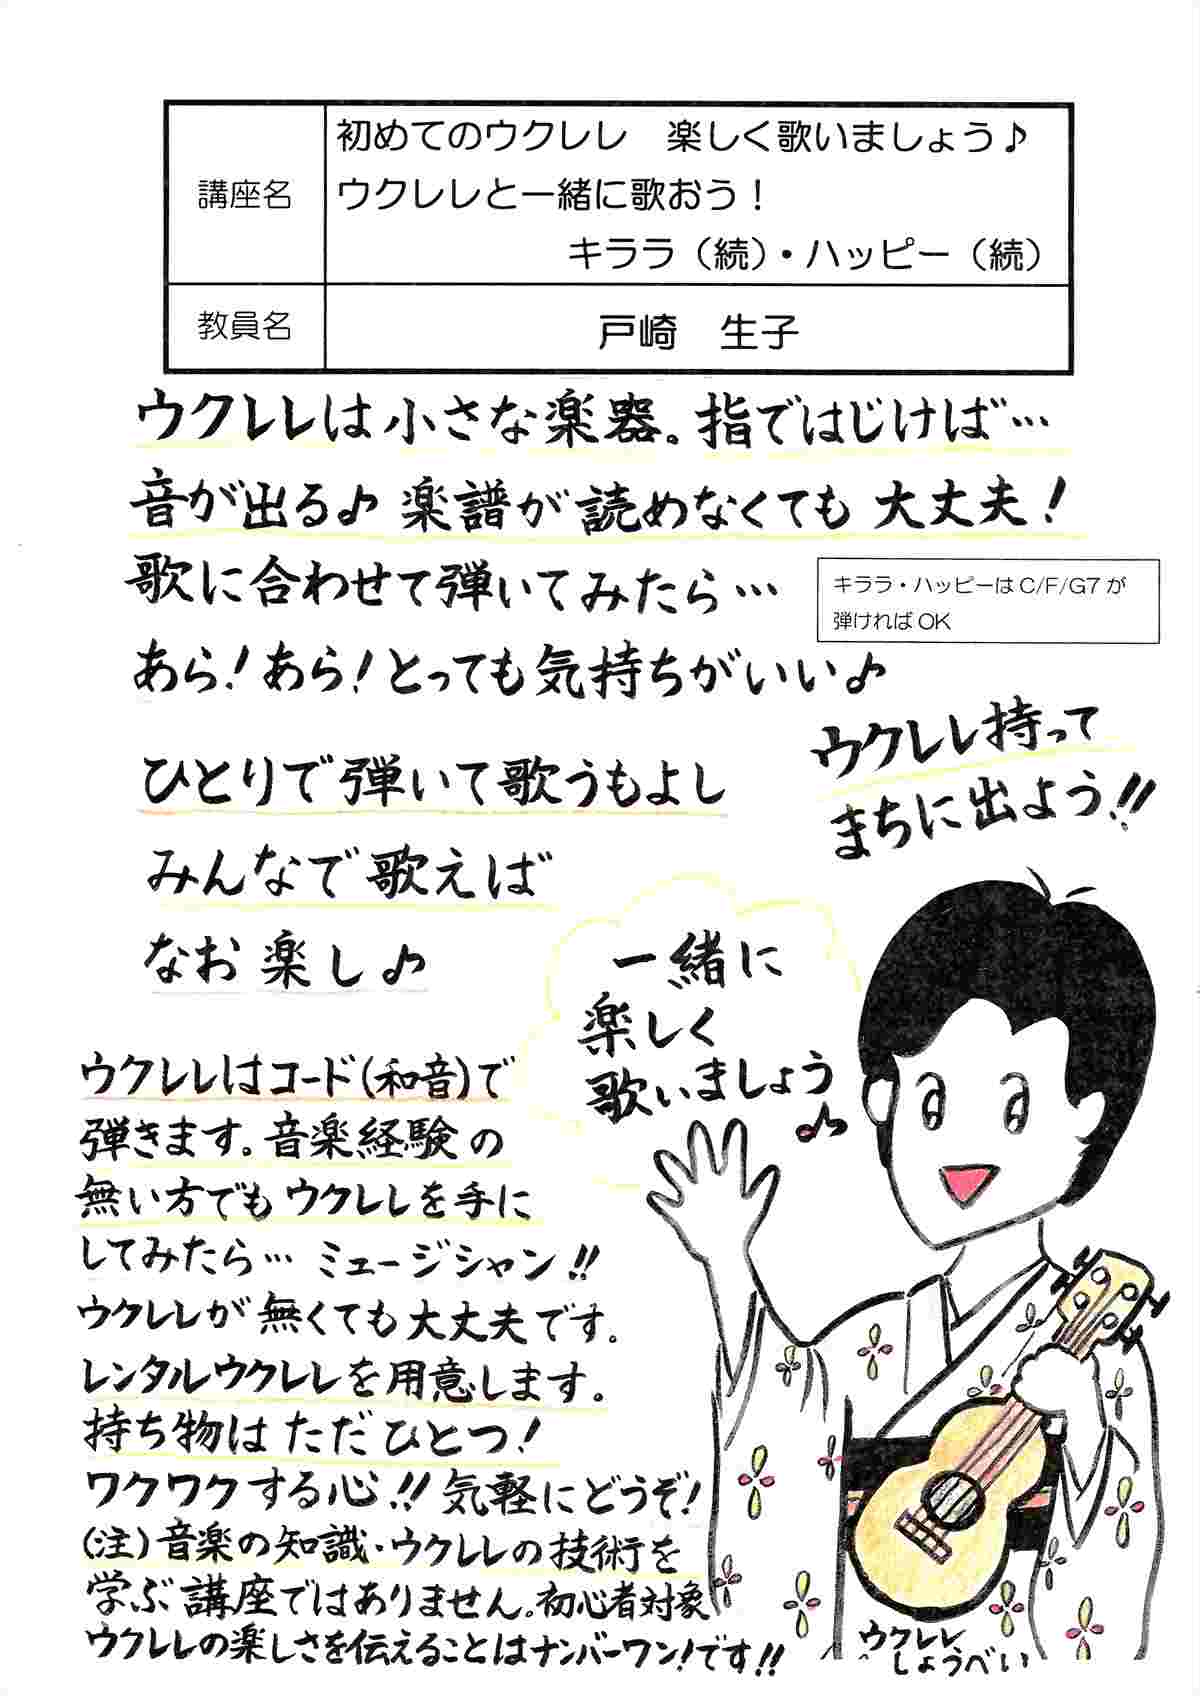 講座名
初めてのウクレレ　楽しく歌いましょう♪
ウクレレと一緒に歌おう！
キララ（続）・ハッピー（続）
教員名
戸崎　生子
ウクレレは小さな楽器。指ではじけば…
音が出る♪ 楽譜が読めなくても 大丈夫！
歌に合わせて弾いてみたら…
キララ・ハッピーは C/F/G7 が
弾ければ OK
あら！あら！とっても気持ちがいい♪
ウクレレ持って
まちに出よう!!
ひとりで弾いて歌うもよし
みんなで歌えば
なお楽し♪
一緒に
楽しく
歌いましょう♪
ウクレレはコード(和音)で
弾きます。音楽経験の
無い方でもウクレレを手に
してみたら… ミュージシャン!!
ウクレレが無くても大丈夫です。
レンタルウクレレを用意します。
持ち物は ただ ひとつ！
ワクワクする心!! 気軽にどうぞ！
(注)音楽の知識・ウクレレの技術を
学ぶ講座ではありません。初心者対象
ウクレレの楽しさを伝えることはナンバーワン！です!!
ウクレレ
しょうべい